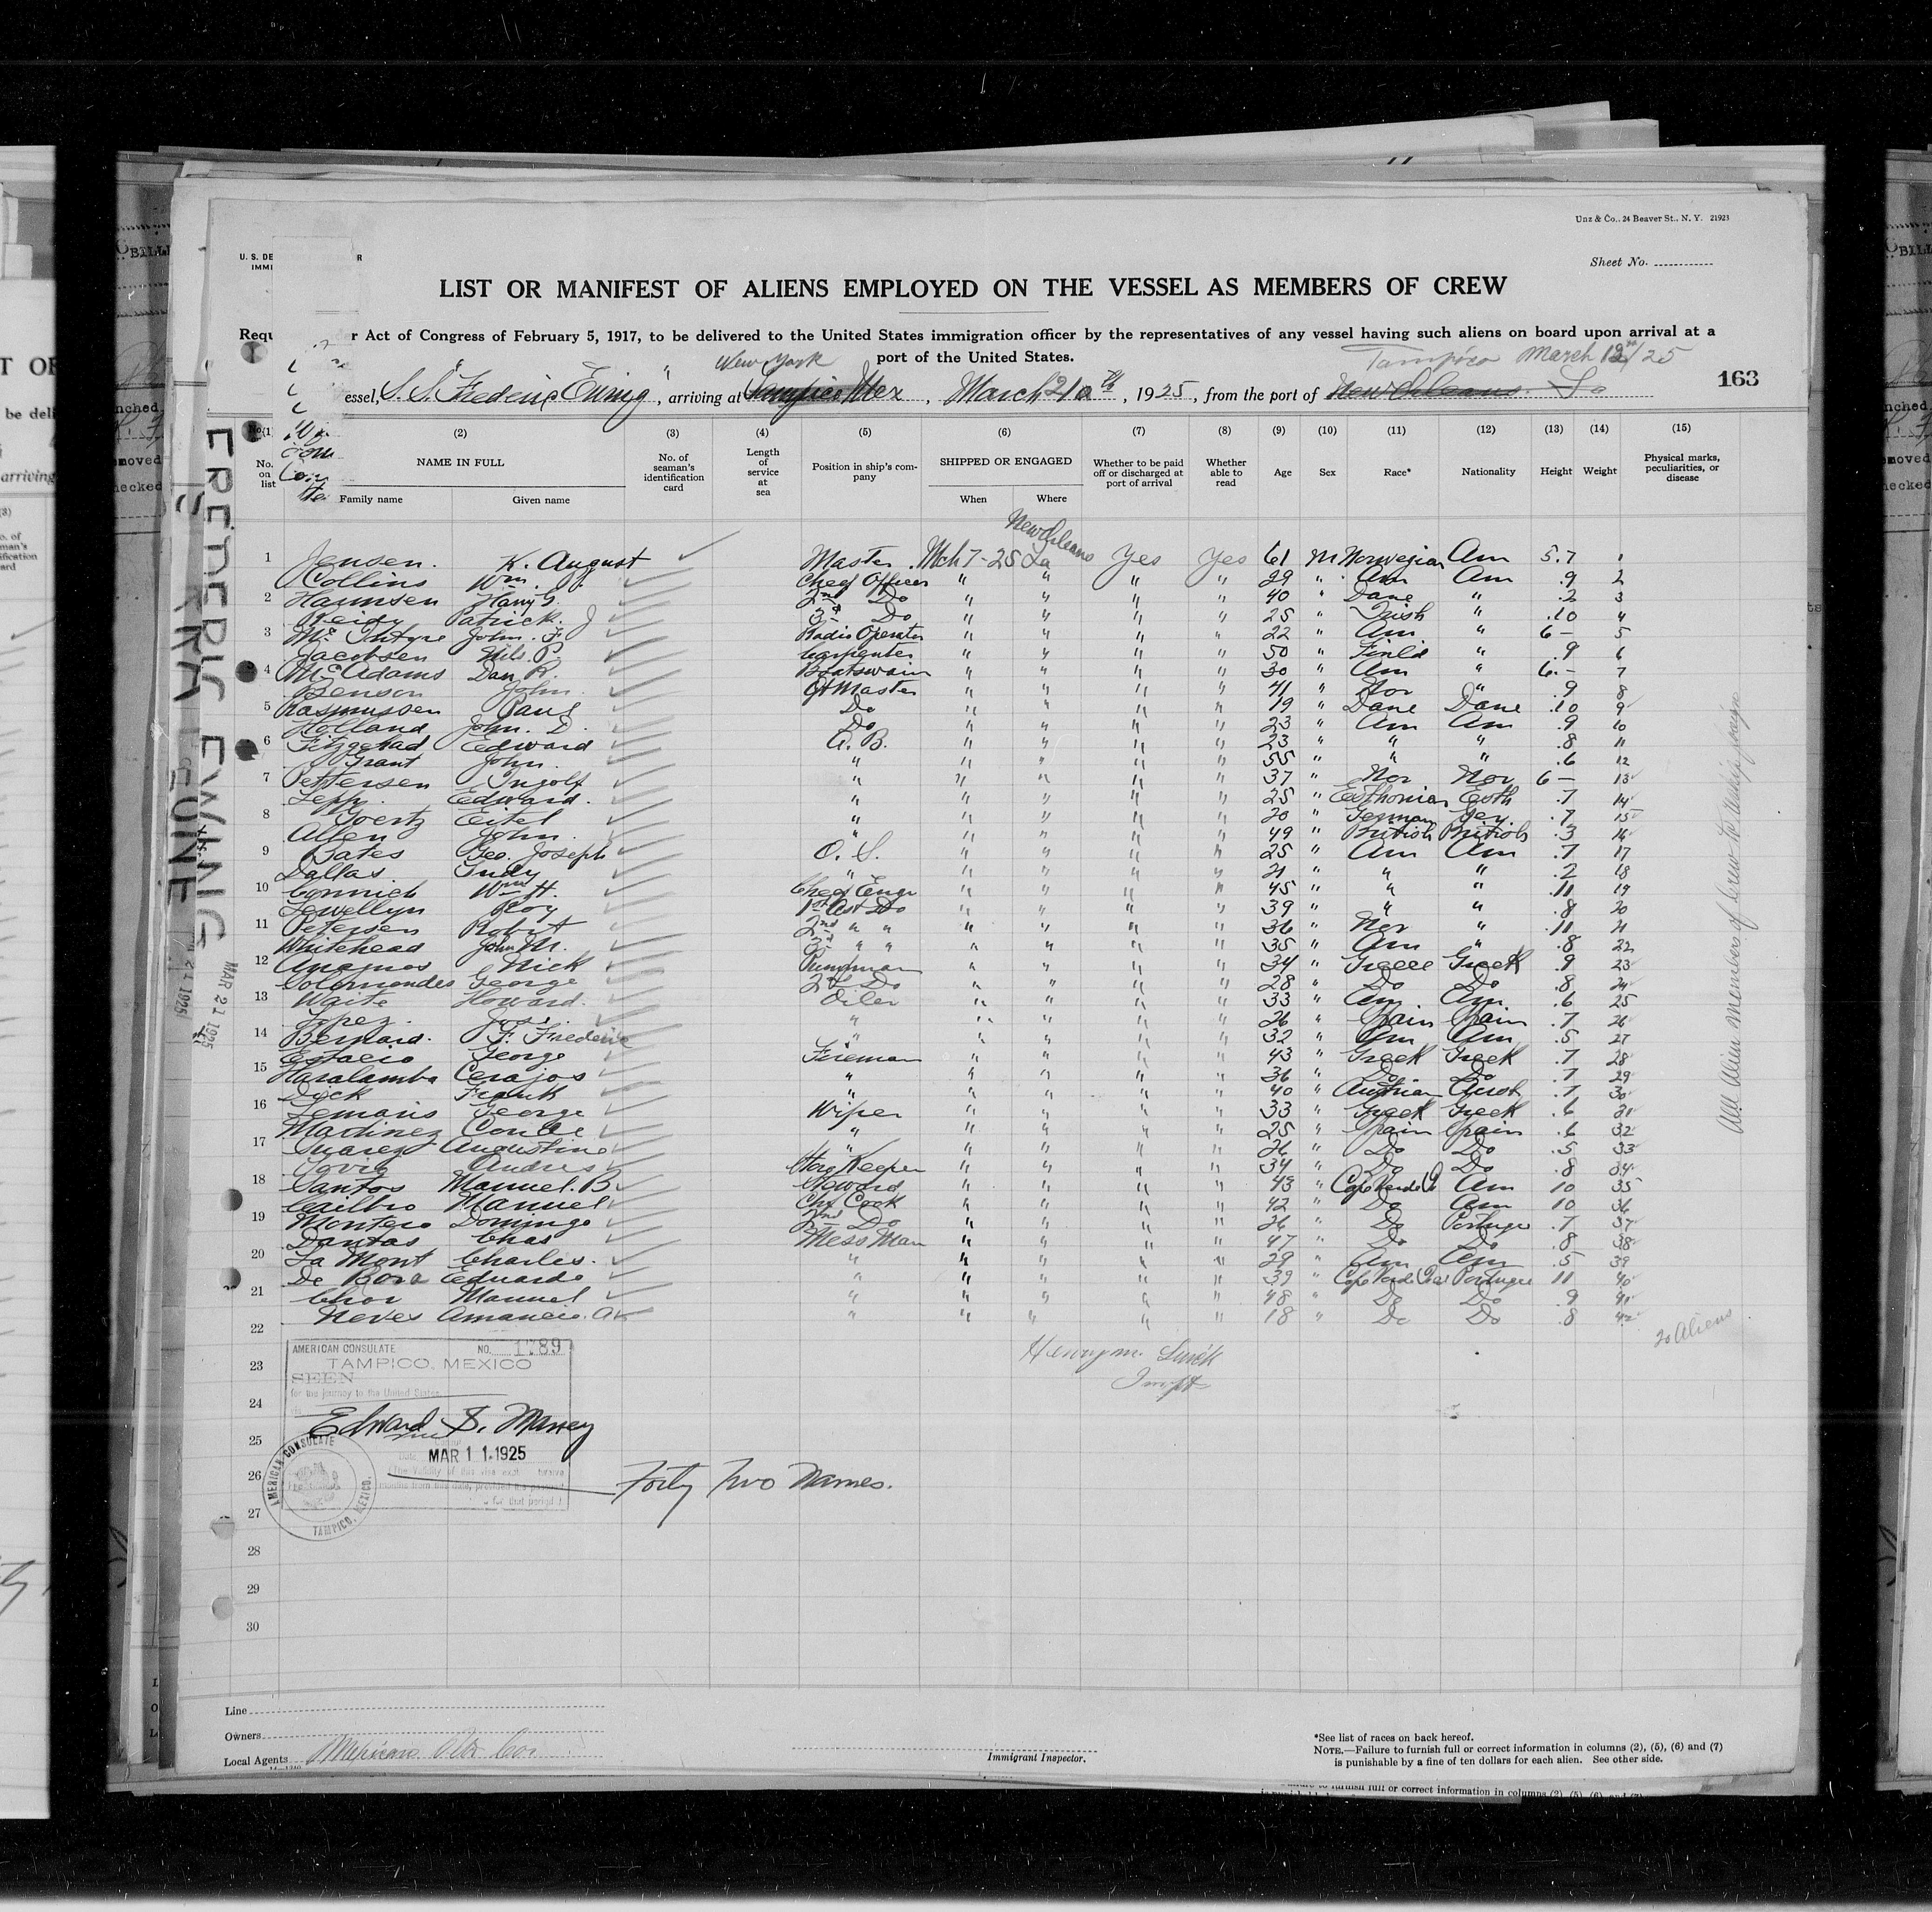 Unz & Co., 24 Beaver St., N. Y. 21923
U. S. DE R
IMMI
Sheet No.
LIST OR MANIFEST OF ALIENS EMPLOYED ON THE VESSEL AS MEMBERS OF CREW
Requ r Act of Congress of February 5, 1917, to be delivered to the United States immigration officer by the representatives of any vessel having such aliens on board upon arrival at a
port of the United States.
New York Tampico March 12th/25
essel, S.S. "Frederic Ewing", arriving at Tampico Mex, March 21 th, 1925, from the port of New Orleans. La
163
(1) (2) (3) (4) (5) (6) (7) (8) (9) (10) (11) (12) (13) (14) (15)
No. on list NAME IN FULL Family name Given name No. of seaman's identification card Length of service at sea Position in ship's company SHIPPED OR ENGAGED When Where Whether to be paid off or discharged at port of arrival Whether able to read Age Sex Race* Nationality Height Weight Physical marks, peculiarities, or disease
New Orleans
Jensen. K. August Master Mch 7-25 La Yes Yes 61 M Norwegian Am 5.7 1
Collins Wm. J. Chief Officer " " " " 29 " Am Am .9 2
Harmsen Harry G. 2nd Do " " " " 40 " Dane " .2 3
Reidy Patrick. J 3d Do " " " " 25 " Irish " .10 4
Mc Intyre John. F. Radio Operator " " " " 22 " Am " 6 - 5
Jacobsen Nils. P. Carpenter " " " " 50 " Finld " .9 6
Mc Adams Dan R. Boatswain " " " " 30 " Am " 6.- 7
Benson John. Qt Master " " " " 41 " Nor " .9 8
Rasmussen Paul Do " " " " 19 " Dane Dane .10 9
Holland John. D. Do " " " " 23 " Am Am .9 10
Fitzgerlad Edward A. B. " " " " 23 " " " .8 11
Grant John. " " " " " 55 " " " .6 12
Pettersen Ingolf " " " " " 37 " Nor Nor 6 - 13
Lepp. Edward. " " " " " 25 " Esthonian Esth .7 14
Goertz Eitel " " " " " 20 " German Ger. .7 15
Allen John. " " " " " 49 " British British .3 16
Bates Geo. Joseph O. S. " " " " 25 " Am Am .7 17
Dallas. Judy " " " " " 21 " " " .2 18
Wm H. Chief Engr " " " " 45 " " " .11 19
Lewellyn Roy 1st Ast Do " " " " 39 " " " .8 20
Petersen Robert 2nd " " " " " " 36 " Nor " .11 21
Whitehead John M. 3d " " " " " " 35 " Am " .8 22
Nick Pumpman " " " " 34 " Greece Greek .9 23
George 2nd Do " " " " 28 " Do Do .8 24
Waite Howard. Oiler " " " " 33 " Am. Am. .6 25
Lopez. Jose. " " " " " 26 " Spain Spain .7 26
Bernard. F. Frederic " " " " " 32 " Am Am .5 27
Estacio George Fireman " " " " 43 " Greek Greek .7 28
Haralamba Cerajos " " " " " 36 " Do Do .7 29
Dick Frank " " " " " 40 " Austrian Aust .7 30
Lemaris George Wiper " " " " 33 " Greek Greek .6 31
Martinez " " " " " 25 " Spain Spain .6 32
Suarez Augustine " " " " " 26 " Do Do .5 33
Andres Store Keeper " " " " 34 " Do Do .8 34
Santos Manuel. B Steward " " " " 43 " Cape Verde Am 10 35
Manuel Chf Cook " " " " 42 " Do Am 10 36
Montero Domingo 2nd Do " " " " 26 " Do Portugee .7 37
Dantas Chas Mess Man " " " " 47 " Do Do .8 38
La Mont Charles. " " " " " 29 " Am Am .5 39
De Bora Eduardo " " " " " 39 " Cape Verde Portugee 11 40
Manuel " " " " " 48 " Do Do .9 41
Neves Amancio. A " " " " " 18 " Do Do .8 42
1
2
3
4
5
6
7
8
9
10
11
12
13
14
15
16
17
18
19
20
21
22
23
24
25
26
27
28
29
30
FREDERIC EWING
MAR 21 1925
All Alien Members of Crew
20 Aliens
Henry M.
Inspt
AMERICAN CONSULATE NO. 1789
TAMPICO, MEXICO
SEEN
for the journey to the United States
Edward S. Maney
MAR 11.1925
AMERICAN CONSULATE
TAMPICO, MEXICO.
Forty Two Names.
Line
Owners
Local Agents
Immigrant Inspector.
*See list of races on back hereof.
NOTE.—Failure to furnish full or correct information in columns (2), (5), (6) and (7)
is punishable by a fine of ten dollars for each alien. See other side.